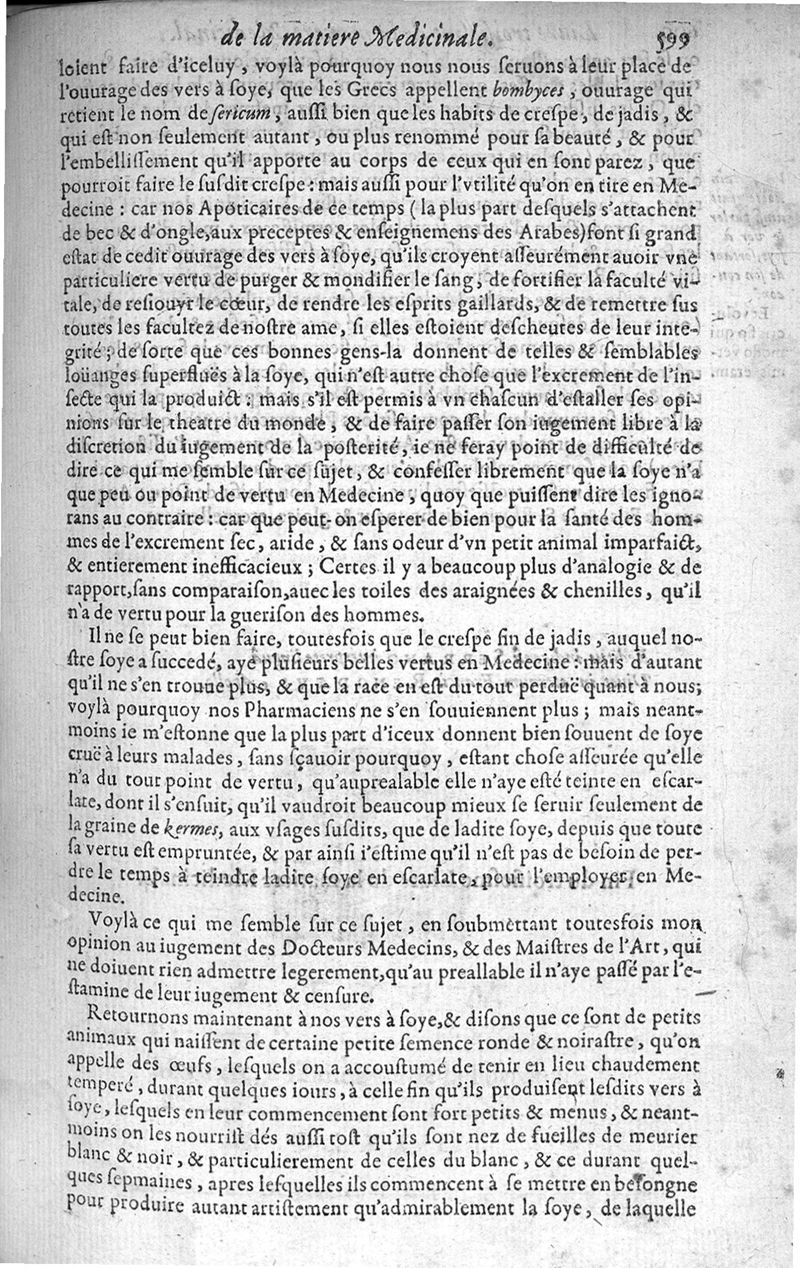 de la matiere Medicinale. 599
loient faire d'iceluy, voylà pourquoy nous nous seruons à leur place de
l'ouurage des vers à soye, que les Grecs appellent bombyces, ouurage qui
retient le nom de sericum, aussi bien que les habits de crespe, de jadis, &
qui est non seulement autant, ou plus renommé pour sa beauté, & pour
l'embellissement qu'il apporte au corps de ceux qui en sont parez, que
pourroit faire le susdit crespe: mais aussi pour l'vtilité qu'on en tire en Me-
decine: car nos Apoticaires de ce temps (la plus part desquels s'attachent
de bec & d'ongle, aux preceptes & enseignemens des Arabes) font si grand
estat de cedit ouurage des vers à soye, qu'ils croyent asseurément auoir vne
particuliere vertu de purger & mondifier le sang, de fortifier la faculté vi-
tale, de resiouyr le cœur, de rendre les esprits gaillards, & de remettre sus
toutes les facultez de nostre ame, si elles estoient descheutes de leur inte-
grité; de sorte que ces bonnes gens-la donnent de telles & semblables
loüanges superfluës à la soye, qui n'est autre chose que l'excrement de l'in-
secte qui la produict: mais s'il est permis à vn chascun d'estaller ses opi-
nions sur le theatre du monde, & de faire passer son iugement libre à la
discretion du iugement de la posterité, ie ne feray point de difficulté de
dire ce qui me semble sur ce sujet, & confesser librement que la soye n'a
que peu ou point de vertu en Medecine, quoy que puissent dire les igno-
rans au contraire: car que peut-on esperer de bien pour la santé des hom-
mes de l'excrement sec, aride, & sans odeur d'vn petit animal imparfaict,
& entierement inefficacieux; Certes il y a beaucoup plus d'analogie & de
rapport, sans comparaison, auec les toiles des araignées & chenilles, qu'il
n'a de vertu pour la guerison des hommes.
Il ne se peut bien faire, toutesfois que le crespe fin de jadis, auquel no-
stre soye a succedé, aye plusieurs belles vertus en Medecine: mais d'autant
qu'il ne s'en trouue plus, & que la race en est du tout perduë quant à nous;
voylà pourquoy nos Pharmaciens ne s'en souuiennent plus; mais neant-
moins ie m'estonne que la plus part d'iceux donnent bien souuent de soye
cruë à leurs malades, sans sçauoir pourquoy, estant chose asseurée qu'elle
n'a du tout point de vertu, qu'auprealable elle n'aye esté teinte en escar-
late, dont il s'ensuit, qu'il vaudroit beaucoup mieux se seruir seulement de
la graine de kermes, aux vsages susdits, que de ladite soye, depuis que toute
sa vertu est empruntée, & par ainsi i'estime qu'il n'est pas de besoin de per-
dre le temps à teindre ladite soye en escarlate, pour l'employer en Me-
decine.
Voylà ce qui me semble sur ce sujet, en soubmettant toutesfois mon
opinion au iugement des Docteurs Medecins, & des Maistres de l'Art, qui
ne doiuent rien admettre legerement, qu'au preallable il n'aye passé par l'e-
stamine de leur iugement & censure.
Retournons maintenant à nos vers à soye, & disons que ce sont de petits
animaux qui naissent de certaine petite semence ronde & noirastre, qu'on
appelle des œufs, lesquels on a accoustumé de tenir en lieu chaudement
temperé, durant quelques iours, à celle fin qu'ils produisent lesdits vers à
soye, lesquels en leur commencement sont fort petits & menus, & neant-
moins on les nourrist dés aussi tost qu'ils sont nez de fueilles de meurier
blanc & noir, & particulierement de celles du blanc, & ce durant quel-
ques sepmaines, apres lesquelles ils commencent à se mettre en besongne
pour produire autant artistement qu'admirablement la soye, de laquelle